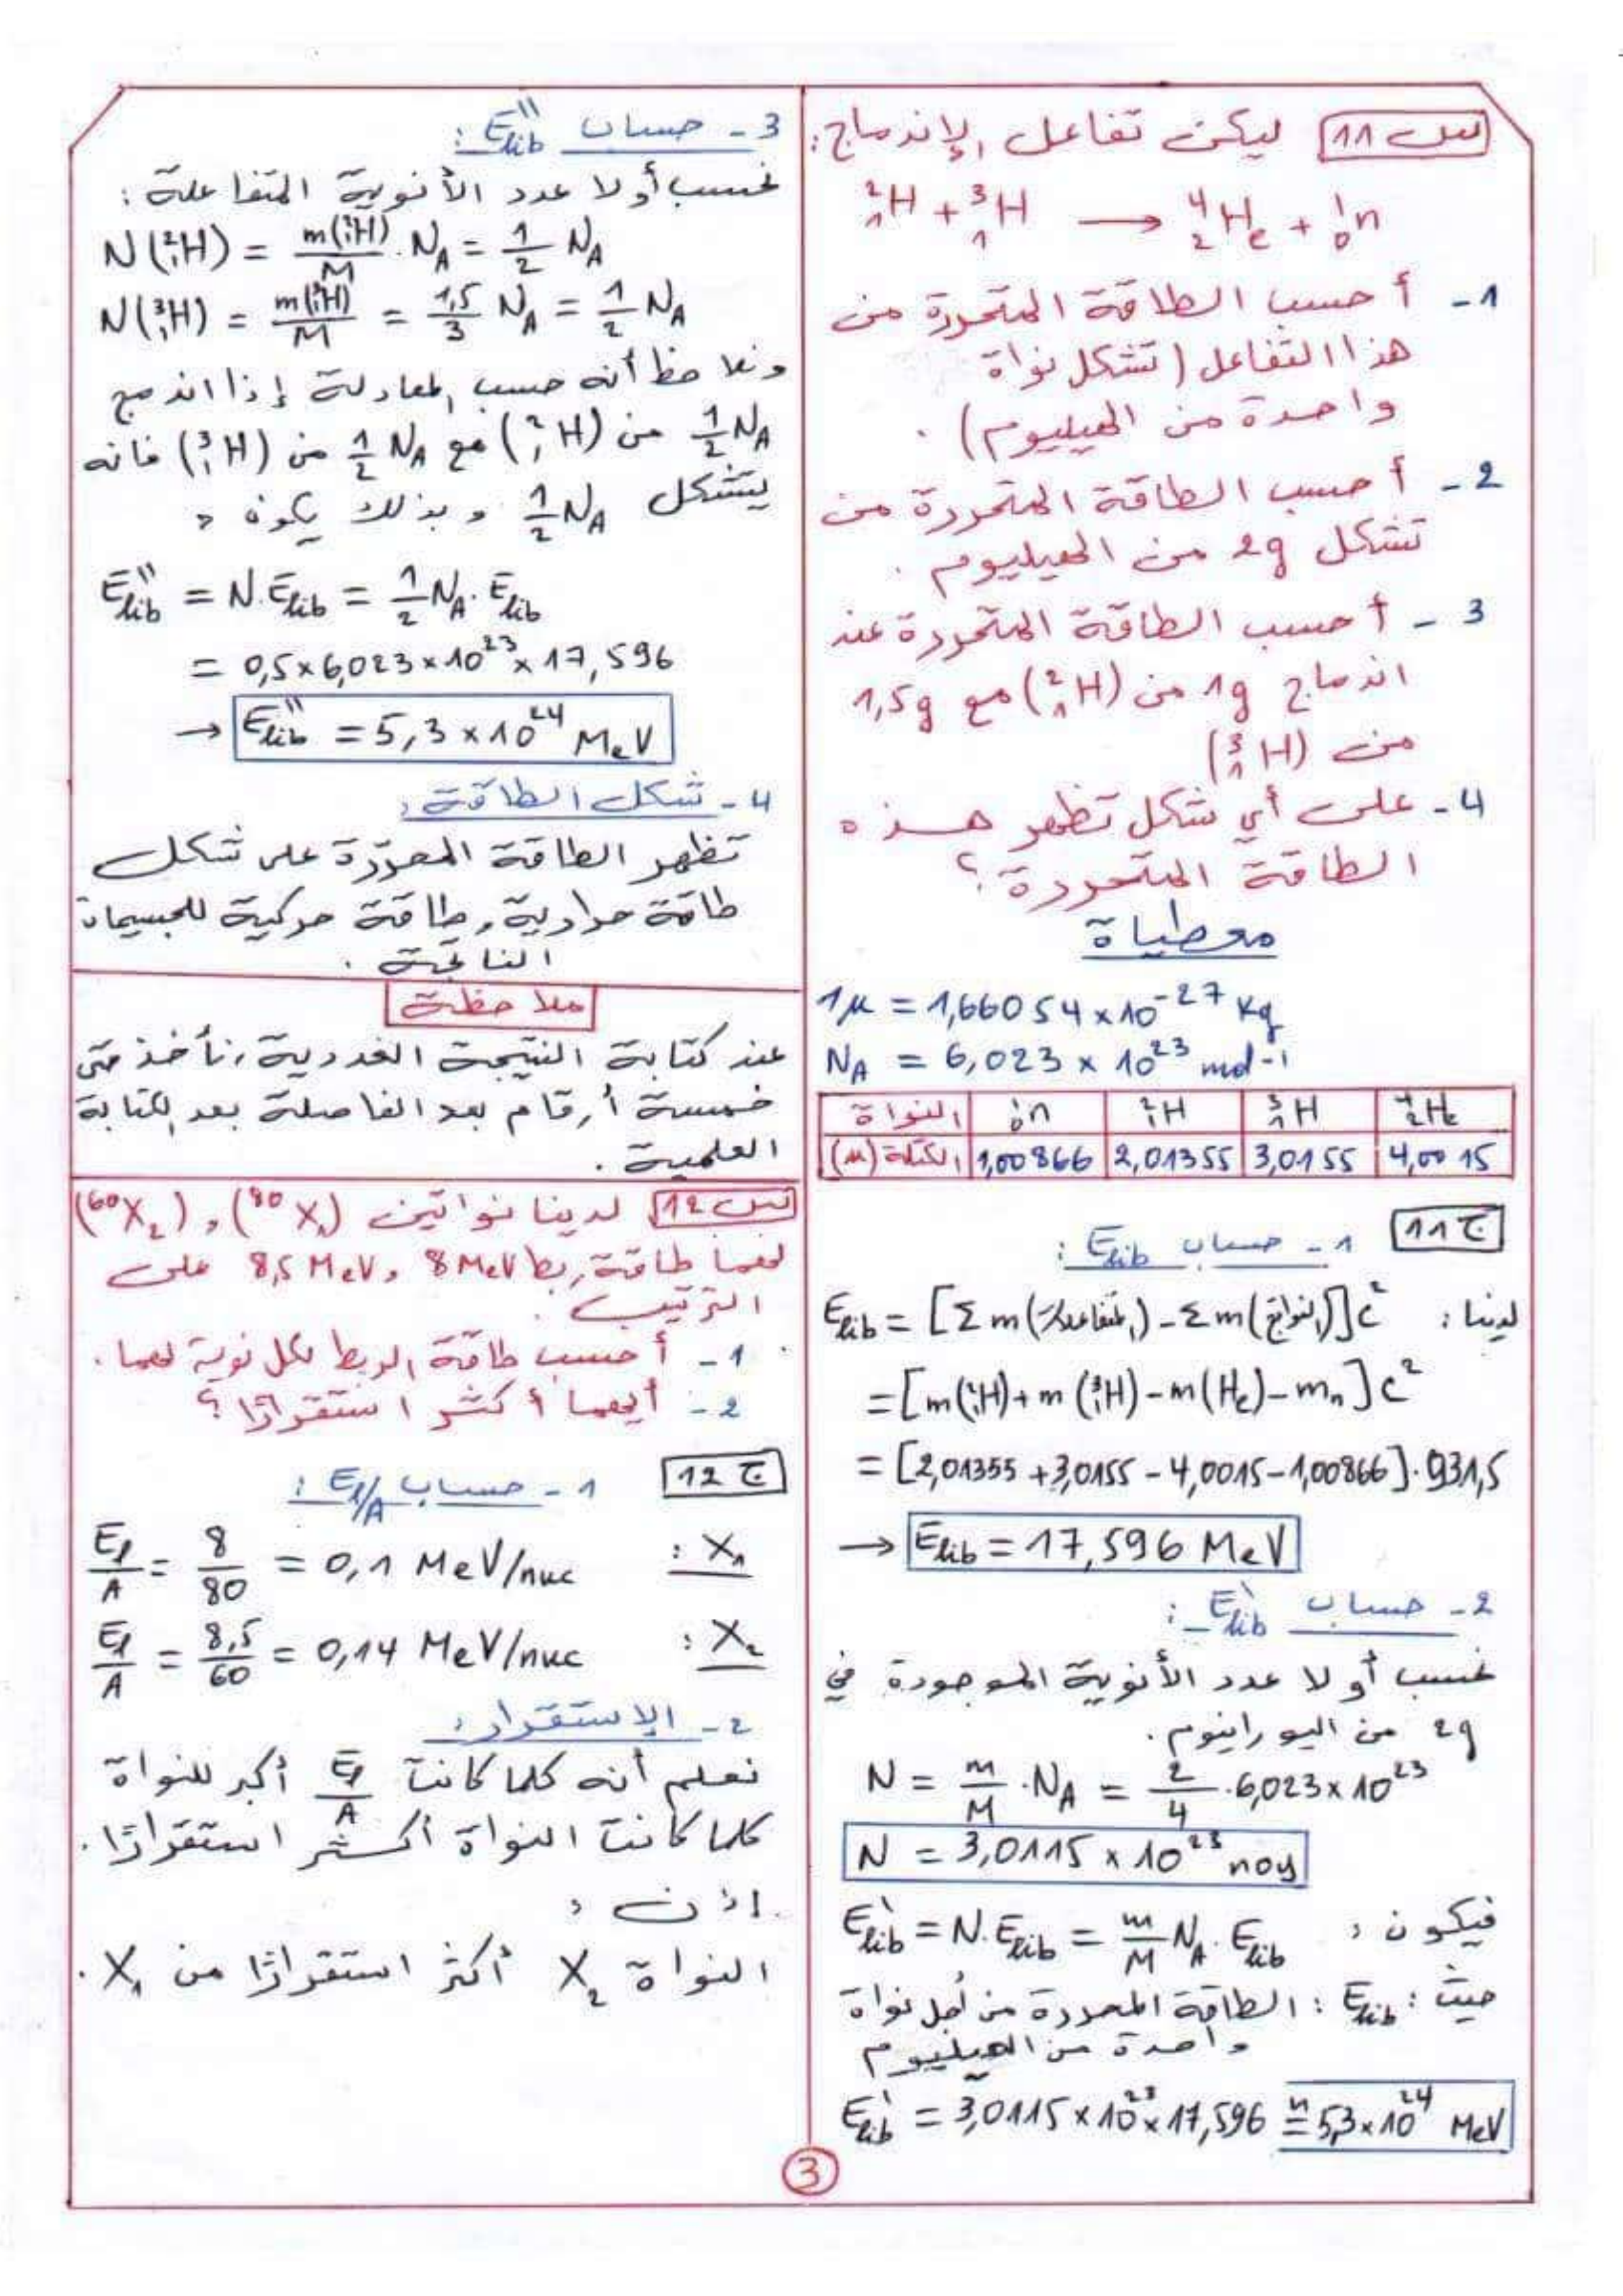 س 11 ليكن تفاعل الإندماج:
²₁H + ³₁H → ⁴₂He + ¹₀n
1- أحسب الطاقة المتحررة من
هذا التفاعل (تشكل نواة
واحدة من الهيليوم).
2- أحسب الطاقة المتحررة من
تشكل 2g من الهيليوم.
3- أحسب الطاقة المتحررة عند
اندماج 1g من (²₁H) مع 1,5g
من (³₁H)
4- على أي شكل تظهر هذه
الطاقة المتحررة؟
معطياة
1μ = 1,66054 × 10⁻²⁷ Kg
N_A = 6,023 × 10²³ mol⁻¹
النواة ¹₀n ²₁H ³₁H ⁴₂He
الكتلة (u) 1,00866 2,01355 3,0155 4,0015
ج 11 1- حساب E_lib:
لدينا: E_lib = [Σm(المتفاعلات) - Σm(النواتج)]c²
= [m(²₁H) + m(³₁H) - m(He) - m_n]c²
= [2,01355 + 3,0155 - 4,0015 - 1,00866].931,5
→ E_lib = 17,596 MeV
2- حساب E'_lib:
نحسب أولا عدد الأنوية الموجودة في
2g من اليورانيوم.
N = m/M . N_A = 2/4 . 6,023 × 10²³
N = 3,0115 × 10²³ noy
فيكون: E'_lib = N.E_lib = m/M N_A . E_lib
حيث: E_lib: الطاقة المحررة من أجل نواة
واحدة من الهيليوم
E'_lib = 3,0115 × 10²³ × 17,596 ≈ 5,3 × 10²⁴ MeV
3- حساب E''_lib:
نحسب أولا عدد الأنوية المتفاعلة:
N(²₁H) = m(²₁H)/M . N_A = 1/2 N_A
N(³₁H) = m(³₁H)/M = 1,5/3 N_A = 1/2 N_A
ونلاحظ أنه حسب المعادلة إذا اندمج
1/2 N_A من (²₁H) مع 1/2 N_A من (³₁H) فانه
يتشكل 1/2 N_A وبذلك يكون:
E''_lib = N.E_lib = 1/2 N_A . E_lib
= 0,5 × 6,023 × 10²³ × 17,596
→ E''_lib = 5,3 × 10²⁴ MeV
4- شكل الطاقة:
تظهر الطاقة المحررة على شكل
طاقة حرارية، طاقة حركية للجسيمات
الناتجة.
ملاحظة
عند كتابة النتيجة العددية، نأخذ حتى
خمسة أرقام بعد الفاصلة بعد الكتابة
العلمية.
س 12 لدينا نواتين (⁸⁰X₁)، (⁶⁰X₂)
لهما طاقة ربط 8 MeV، 8,5 MeV على
الترتيب.
1- أحسب طاقة الربط لكل نوية لهما.
2- أيهما أكثر استقرارًا؟
ج 12 1- حساب E_l/A:
X₁: E_l/A = 8/80 = 0,1 MeV/nuc
X₂: E_l/A = 8,5/60 = 0,14 MeV/nuc
2- الإستقرار:
نعلم أنه كلما كانت E_l/A أكبر للنواة
كلما كانت النواة أكثر استقرارًا.
إذن:
النواة X₂ أكثر استقرارًا من X₁.
3